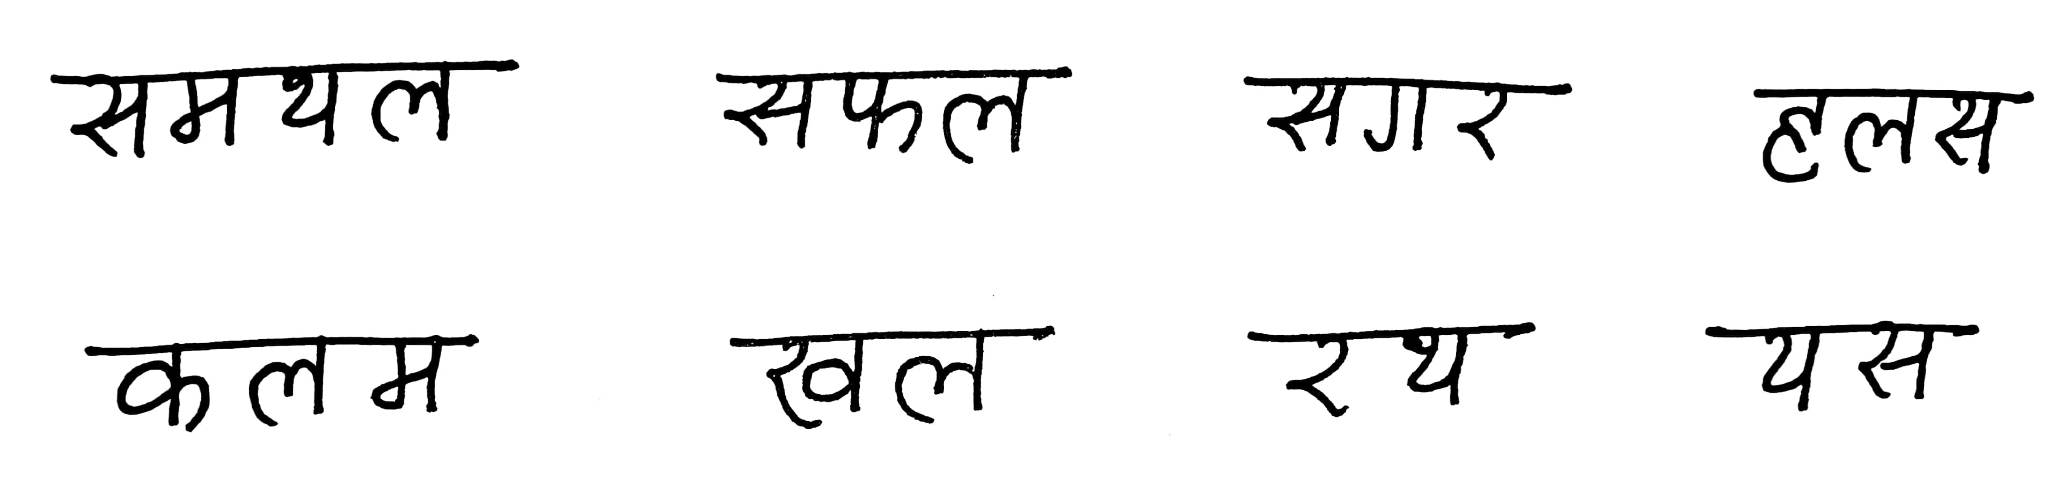 समथल सफल सगर हलस
कलम खल रथ यस